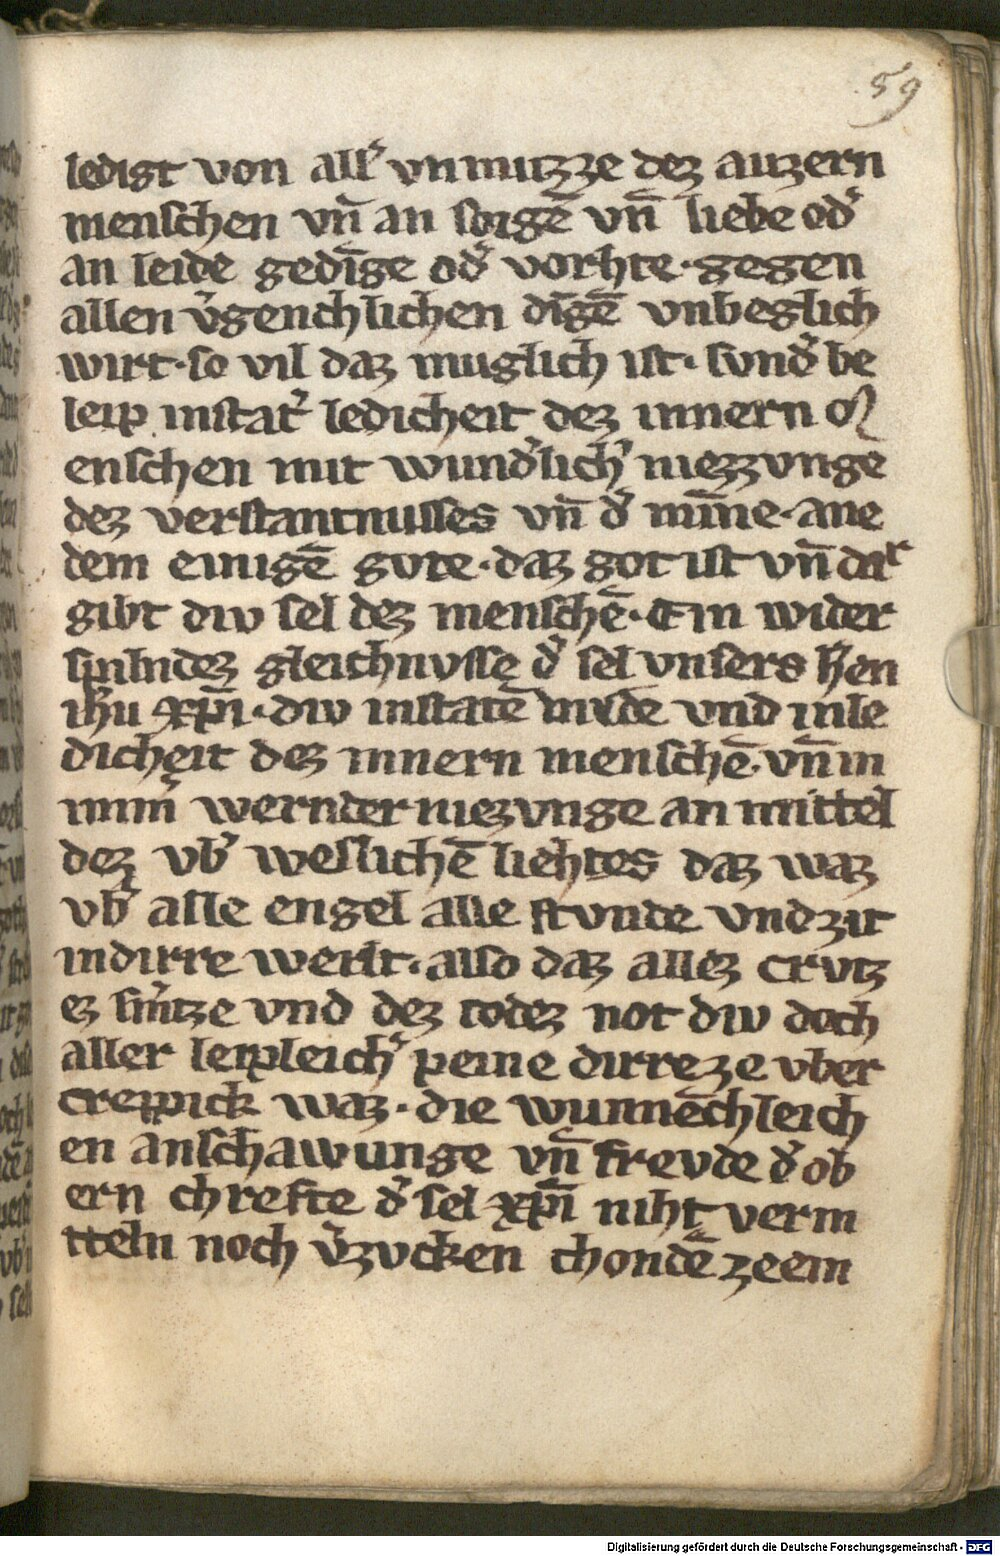 59
ledigt von all᷑ vnmutzze dez auzern
menschen vn̄ an sorgē vn̄ liebe od᷑
an leide gedīge od᷑ vorhte · gegen
allen v᷑gench lichen dīgē vnbeglich
wirt · so vil daz muglich ist · svnd᷑ be
leip instat᷑ ledicheit dez innern M
enschen mit wund᷑lich᷑ niezzvnge
dez verstantnusses vn̄ d᷑ mīne · ane
dem einigē gvte · daz got ist vn̄ daʳ
gibt div sel dez menschē · Ein wider
spilndez gleichnvsse d᷑ sel vnsers h̄en
ih̄u xp̄i · div instatē milde vnd inle
dicheit dez innern menschē · vn̄ in
imm᷑ wernder niezvnge an mittel
dez vb᷑ weslichē liehtes daz waz
vb᷑ alle engel alle stvnde vnd zit
indirre werlt · also daz allez crvtz
ez sm᷑tze vnd dez todez not div doch
aller leipleich᷑ peine dirre ze vber
treppick waz · die wunnēchleich
en anschawunge vn̄ frevde d᷑ ob
ern chrefte d᷑ sel xp̄i niht verm
tteln noch v᷑zvcken chondē ze em
Digitalisierung gefördert durch die Deutsche Forschungsgemeinschaft - DFG